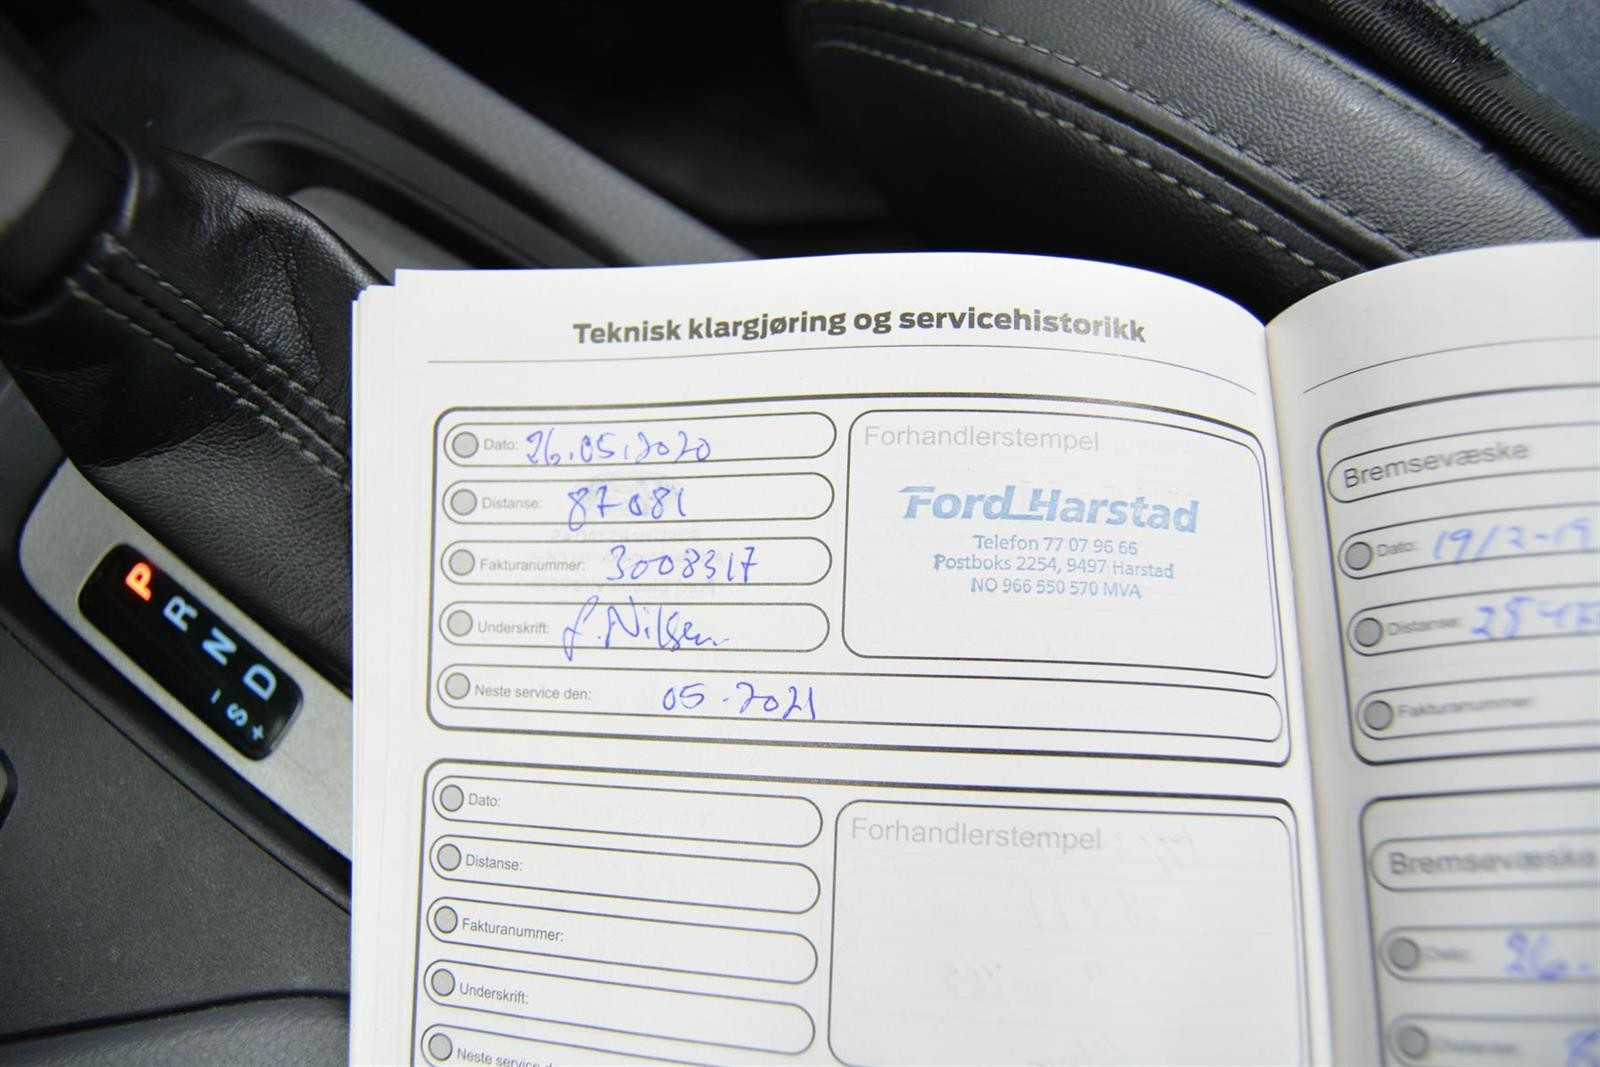 Teknisk klargjøring og servicehistorikk
Dato: 26.05.2020
Distanse: 87081
Fakturanummer: 3008317
Underskrift: J. Nilsen
Neste service den: 05-2021
Forhandlerstempel
Ford Harstad
Telefon 77 07 96 66
Postboks 2254, 9497 Harstad
NO 966 550 570 MVA
Dato:
Distanse:
Fakturanummer:
Underskrift:
Neste service
Forhandlerstempel
Bremsevæske
Dato:
Distanse:
Fakturanummer:
Bremsevæske
Dato: 26.
Distanse:
P
R
N
D
–
S
+